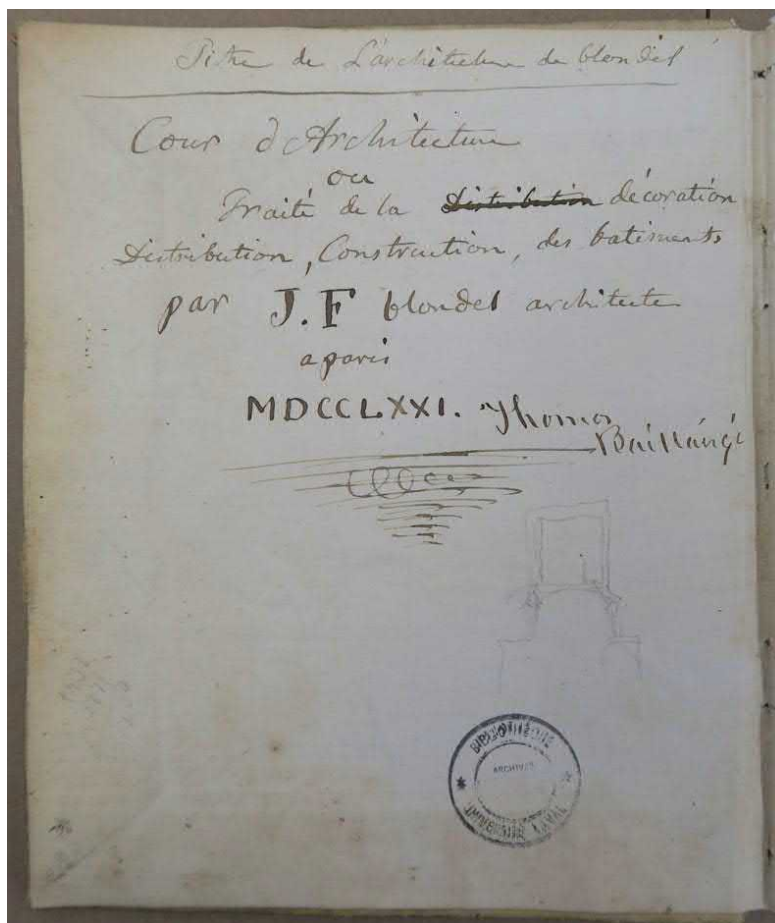 Titre de L'architecture de blondel
Cour d'Architecture
ou
Traité de la Distribution décoration
Distribution, Construction, des batiments
par J.F blondel architecte
a paris
MDCCLXXI. Thomas
Baillairgé
BIBLIOTHEQUE
ARCHIVES
UNIVERSITE LAVAL